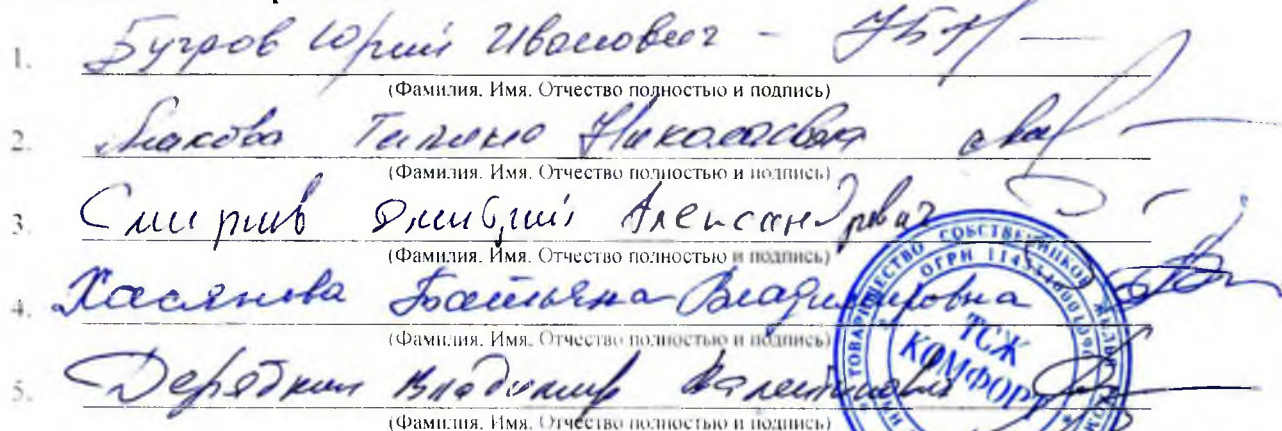 1. Бугров Юрий Иванович -
(Фамилия, Имя, Отчество полностью и подпись)
2. Макова Татьяна Николаевна
(Фамилия, Имя, Отчество полностью и подпись)
3. Смирнов Дмитрий Александрович
(Фамилия, Имя, Отчество полностью и подпись)
4. Хасянова Татьяна Владимировна
(Фамилия, Имя, Отчество полностью и подпись)
5. Дерябкин Владимир Валентинович
(Фамилия, Имя, Отчество полностью и подпись)
ТОВАРИЩЕСТВО СОБСТВЕННИКОВ ЖИЛЬЯ
ОГРН
ТСЖ
КОМФОРТ